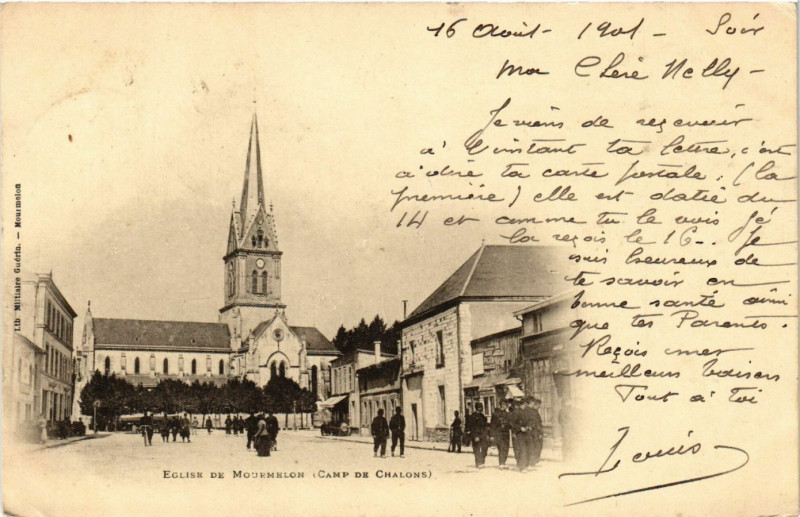 16 Août - 1901 - Soir
Ma Chère Nelly -
Je viens de reçevoir
à l'instant ta lettre, c'est
à dire ta carte postale, (la
première) elle est datée du
14 et comme tu le vois jé
la reçois le 16 -. Je
suis heureux de
te savoir en
bonne santé ainsi
que tes Parents.
Reçois mes
meilleurs baisers
Tout à toi
Louis
Lib. Militaire Guérin. — Mourmelon
EGLISE DE MOURMELON (CAMP DE CHALONS)